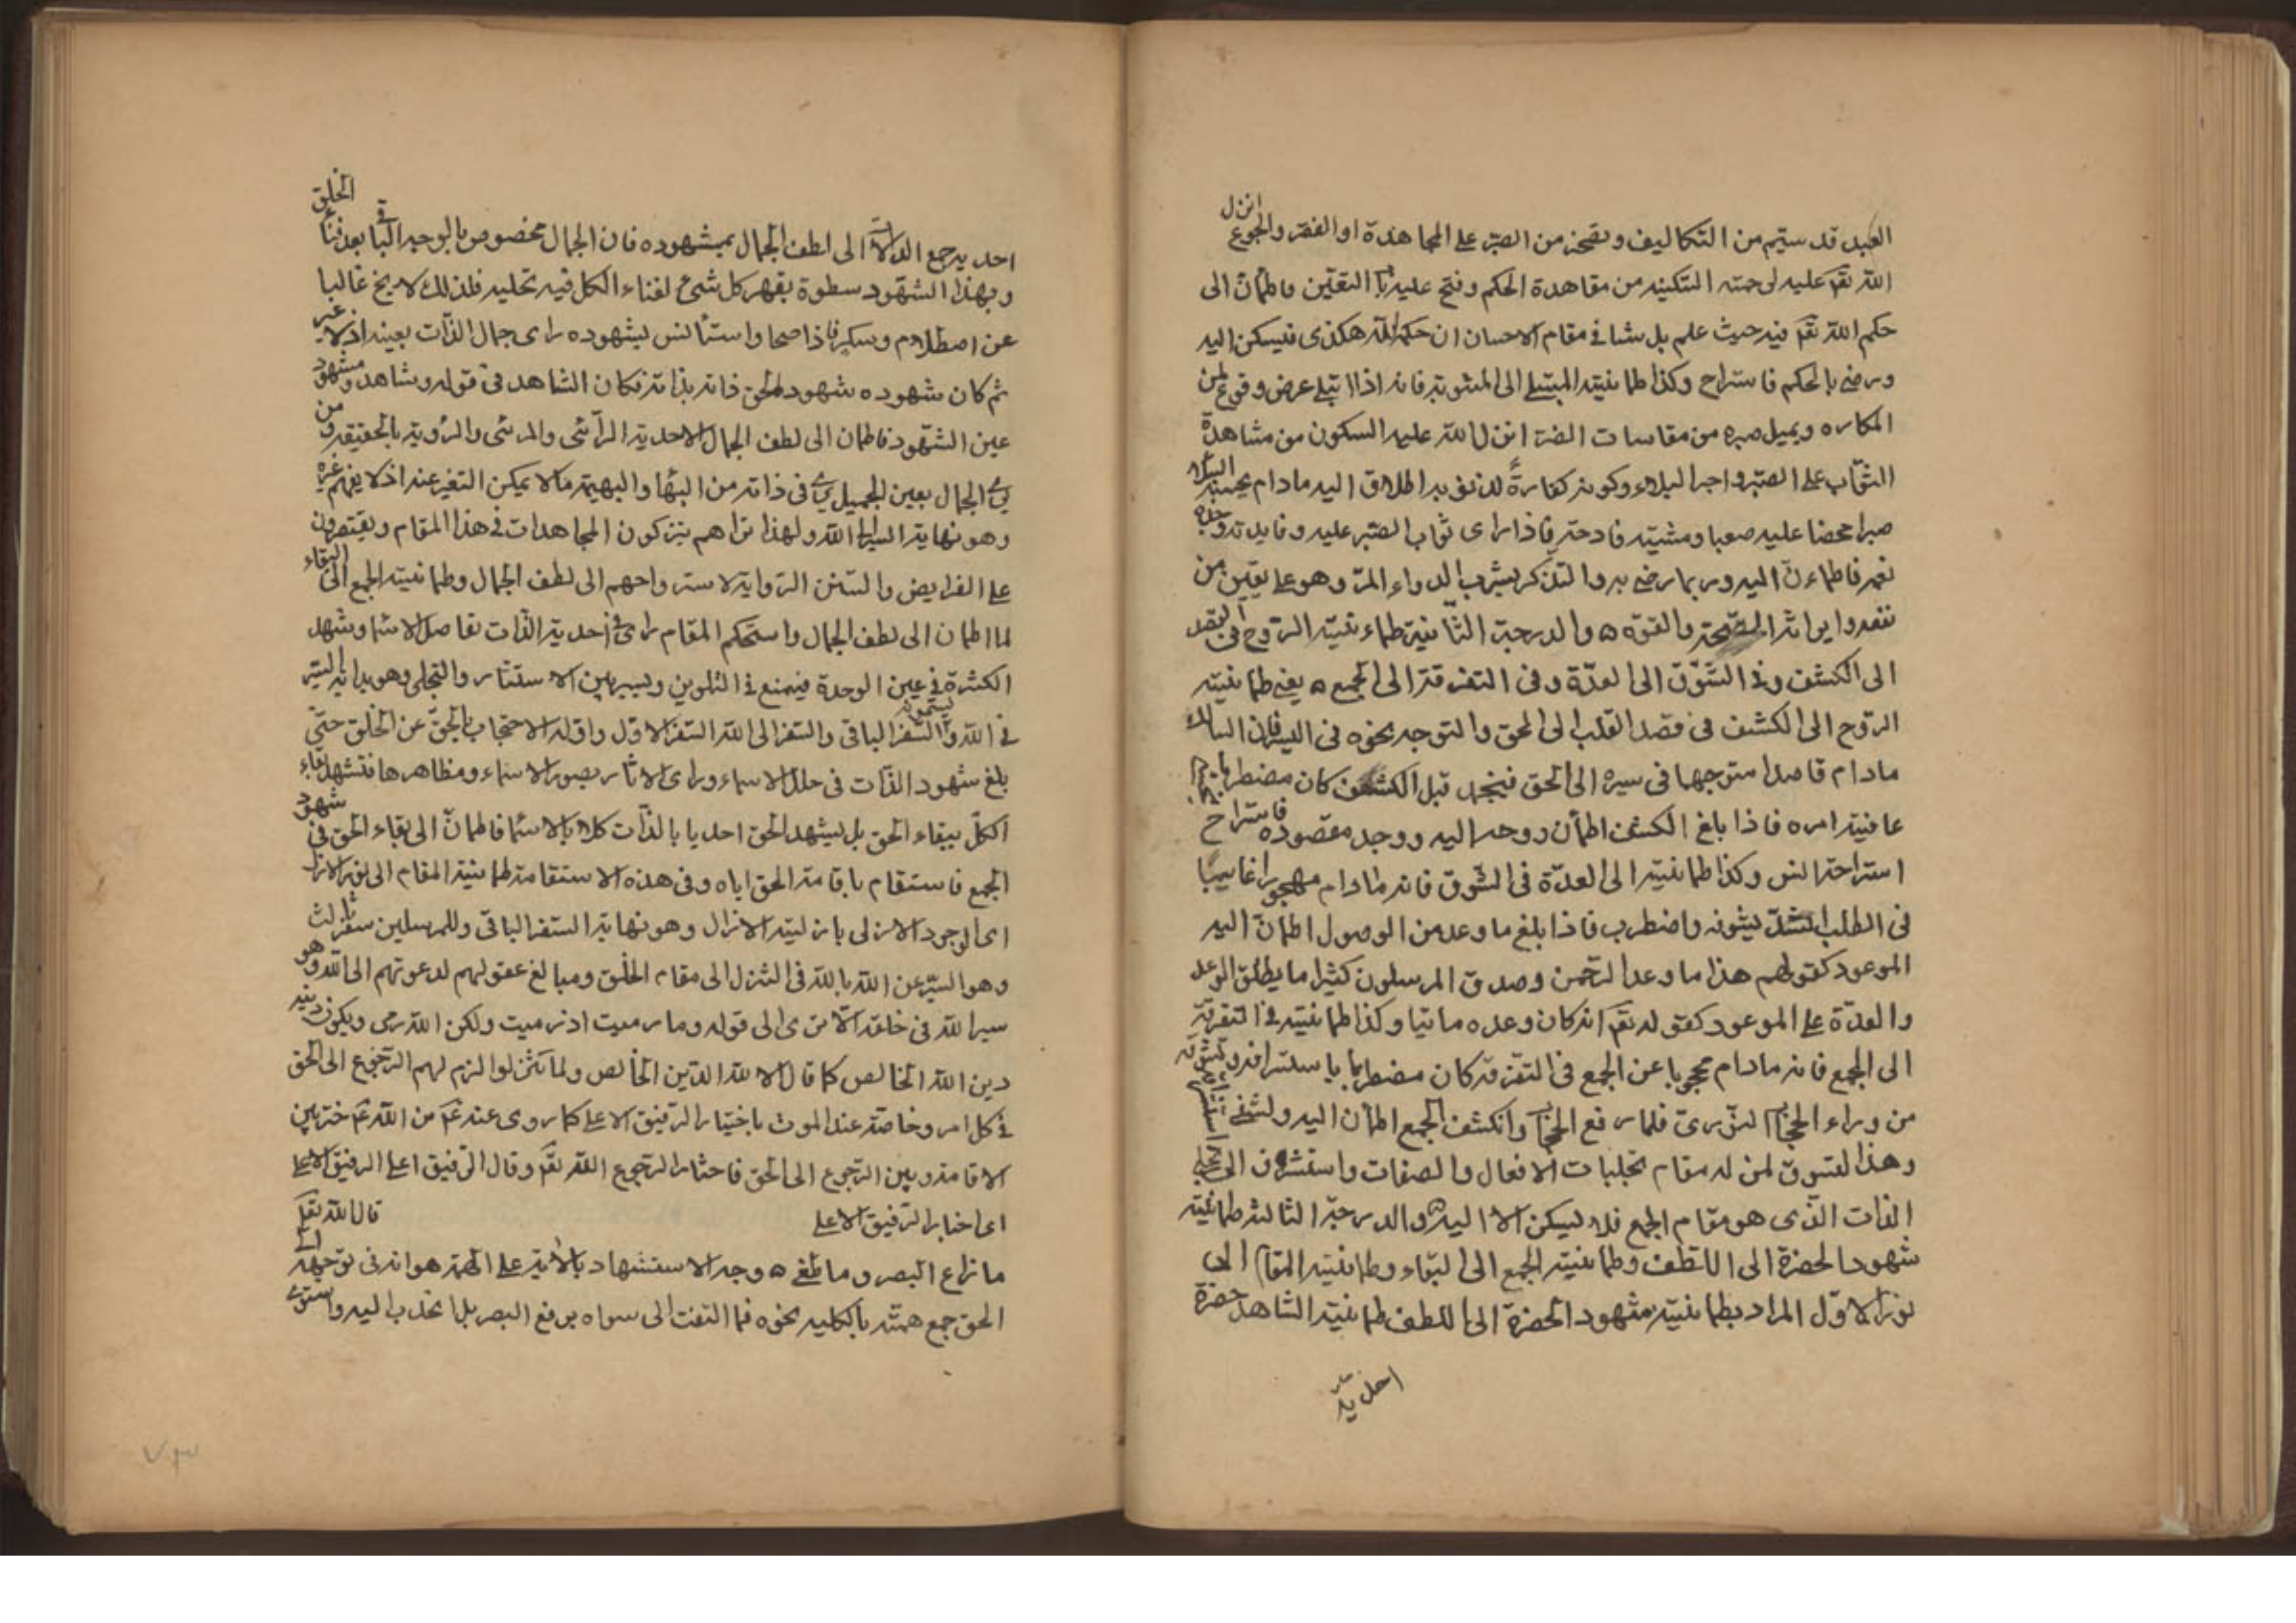 العبد قد سئم من التكاليف وتضجر من الصبر على المجاهدة او الفقر والجوع انزل
الله تعم عليه لرحمته السكينه من مقاهدة الحكم وفتح عليه باب اليقين فاطمأن الى
حكم الله تعم فيه حيث علم بل شا في مقام الاحسان ان حكم الله هكذى فيسكن اليه
ورضى بالحكم فاستراح وكذا طمانينته المبتلى الى المثوبة فانه اذا ابتلى عرض وقوع لمن
المكاره ويميل صبره من مقاسات الضر انزل الله عليه السكون من مشاهدة
الثواب على الصبر واجر البلاء وكونه كفارة لذنوبه اطلاق اليه مادام يحسب البلاء
صبرا محضا عليه صعبا ومشيته فادحة فاذا راى ثواب الصبر عليه وفايدته وجده
نعمة فاطمأن اليه وربما رضى به والتذ كمن يشرب الدواء المر وهو على يقين من
نفعه وايراثه الصحة والقوة ٥ والدرجة الثانية طمأنينة الروح في القصد
الى الكشف وفي الشوق الى العدة وفي التفرقة الى الجمع ٥ يعني طمانينته
الروح الى الكشف في قصد القلب الى الحق والتوجه نحوه في السير فان السالك
مادام قاصدا متوجها في سيره الى الحق فينجد قبل الكشف كان مضطربا
عاقبة امره فاذا بلغ الكشف اطمأن روحه اليه ووجد مقصوده فاستراح
استراحة انس وكذا طمانينته الى العدة في الشوق فانه مادام مهجورا غايبا
في الطلب اشتد شوقه واضطرب فاذا بلغ ما وعد من الوصول اطمأن اليه
الموعود كقولهم هذا ما وعد الرحمن وصدق المرسلون كثيرا ما يطلق الوعد
والعدة على الموعود كقوله تعم انه كان وعده ماتيا وكذا طمانينته في التفرقة
الى الجمع فانه مادام محجوبا عن الجمع في التفرقة كان مضطربا
من وراء الحجاب النوري فلما رفع الحجاب وانكشف الجمع اطمأن اليه
وهذا لتشوق لمن له مقام تجليات الافعال والصفات واستشرف الى تجلى
الذات الذى هو مقام الجمع فلا يسكن الا اليه ٥ والدرجة الثالثة طمانينة
شهود الحضرة الى اللطف وطمانينته الجمع الى البقاء وطمانينته المقام الى
نور الاول المراد بطمانينته شهود الحضرة الى اللطف طمانينته الشاهد حضرة
احدية
احدية جمع الذات الى لطف الجمال بمشهوده فان الجمال مخصوص بالوجه الباقى بعد فناء الخلق
وبهذا الشهود سطوة يقهر كل شئ لفناء الكل فيه تجليه فلذلك لا يخ غالبا
عن اصطلام وسكر فاذا صحا واستأنس بشهوده راى جمال الذات بعينه اذ لا غير
ثم كان شهوده شهود الحق ذاته بذاته فكان الشاهد في قوله وشاهد ومشهود
عين الشهود فاطمان الى لطف الجمال الاحدية الرائى والمرئى والرؤية بالحقيقة ومن
يرى الجمال بعين الجميل يرى في ذاته من البهاء والبهجة ما لا يمكن التعبير عنه اذ لا يفهم غيره
وهو نهاية السير الى الله ولهذا تراهم يتركون المجاهدات في هذا المقام ويقتصرون
على الفرايض والسنن الرواتب لاسترواحهم الى لطف الجمال وطمانينته الجمع الى البقاء
لما اطمان الى لطف الجمال واستحكم المقام راى في احدية الذات تفاصل الاسماء وشهد
الكثرة في عين الوحدة فيمنع في التلوين ويسير بين الاستتار والتجلى وهو بداية السير
في الله ويسمونه السفر الباقى والسفر الى الله السفر الاول واوله الاحتجاب بالحق عن الخلق حتى
بلغ شهود الذات في حلل الاسماء وراى الاثار بصور الاسماء ومظاهرها فتشهد بقاء
الكل ببقاء الحق بل يشهد الحق احديا بالذات كلا بالاسماء فاطمأن الى بقاء الحق في شهود
الجمع فاستقام باقامة الحق اياه وفي هذه الاستقامة طمانينة المقام الى نور الازل
اى الوجود الازلى بازلية الازل وهو نهاية السفر الباقى وللمرسلين سفر ثالث
وهو السير عن الله بالله في التنزل الى مقام الخلق ومبالغ عقولهم لدعوتهم الى الله وهو
سير الله في خلقه الا ترى الى قوله وما رميت اذ رميت ولكن الله رمى ويكون دينه
دين الله الخالص كما قال الا لله الدين الخالص ولما تنزلوا لزم لهم الرجوع الى الحق
في كل امر وخاصة عند الموت باختيار الرفيق الاعلى كما روى عنه عم من الله عم خير بين
الاقامة وبين الرجوع الى الحق فاختار الرجوع الى الله تعم وقال الرفيق اعلى الرفيق الاعلى
اى اختار الرفيق الاعلى قال الله تعم
ما زاغ البصر وما طغى ٥ وجه الاستشهاد بالاية على الهمة هو انه في توجهه الى
الحق جمع همته بالكليه نحوه فما التفت الى سواه برفع البصر بل انجذب اليه واستوى
٧٠٣